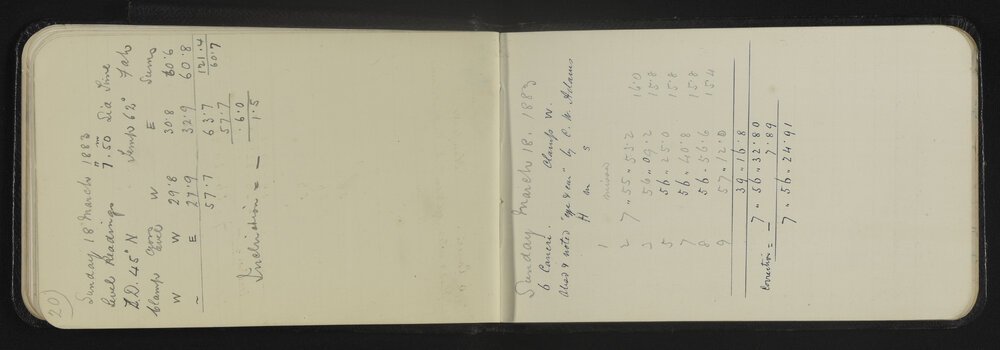 20)
Sunday 18 March 1883
Level Readings 7.50 Sid Time
Z.D. 45° N Temp 62° Fah
Clamp Goro W E Sums
Level
W W 29.8 30.8 60.6
~ E 27.9 32.9 60.8
57.7 63.7 121.4
57.7 60.7
6.0
Inclination = – 1.5
Sunday March 18. 1883
6 Cancri. Clamp W.
Obsd & noted "eye & ear" by C. W. Adams
H m s
1 missed
2 7 " 55 " 53.2 16.0
3 56 " 09.2 15.8
5 56 " 25.0 15.8
7 56 " 40.8 15.8
8 56 " 56.6 15.4
9 57 " 12.0
39 " 16.8
7 " 56 " 32.80
Correction = – 7.89
7 " 56 " 24.91